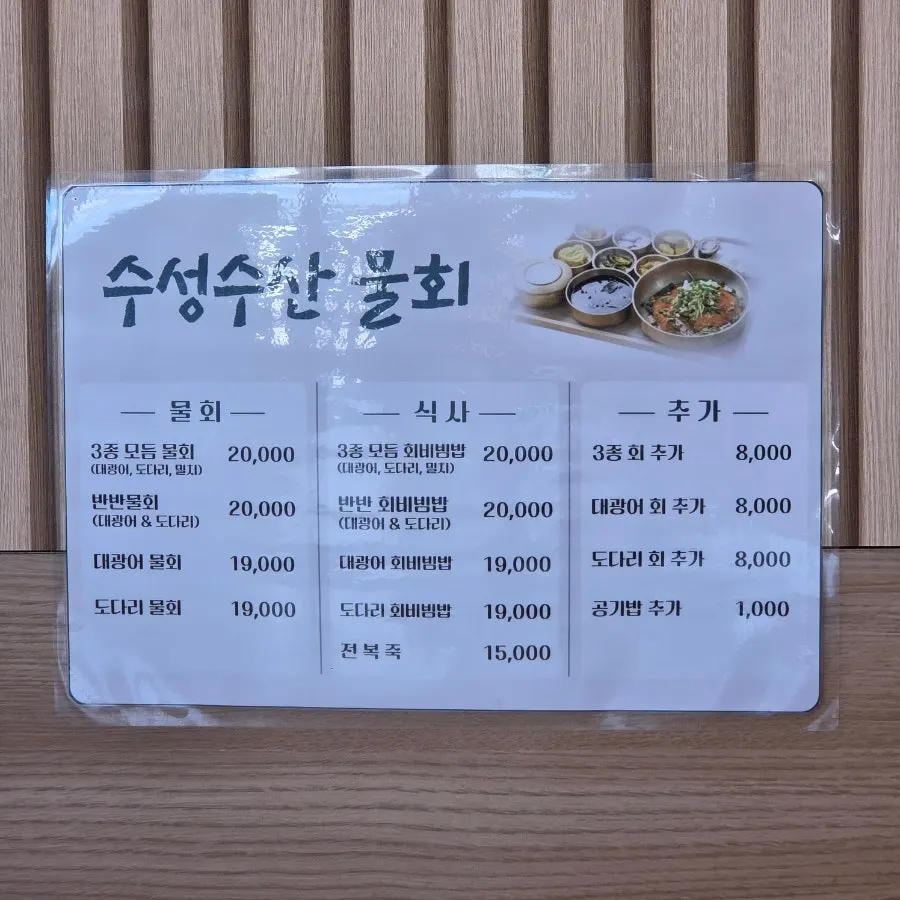 수성수산 물회
물회
3종 모듬 물회 20,000
(대광어, 도다리, 멸치)
반반물회 20,000
(대광어 & 도다리)
대광어 물회 19,000
도다리 물회 19,000
식사
3종 모듬 회비빔밥 20,000
(대광어, 도다리, 멸치)
반반 회비빔밥 20,000
(대광어 & 도다리)
대광어 회비빔밥 19,000
도다리 회비빔밥 19,000
전복죽 15,000
추가
3종 회 추가 8,000
대광어 회 추가 8,000
도다리 회 추가 8,000
공기밥 추가 1,000